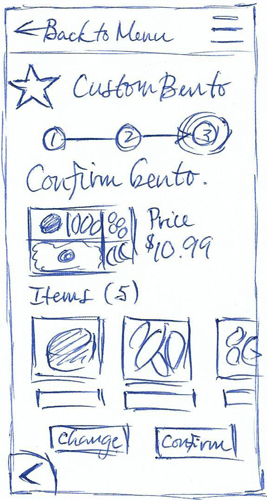 ← Back to Menu
Custom Bento
1 2 3
Confirm bento.
Price
$10.99
Items (5)
Change Confirm
<